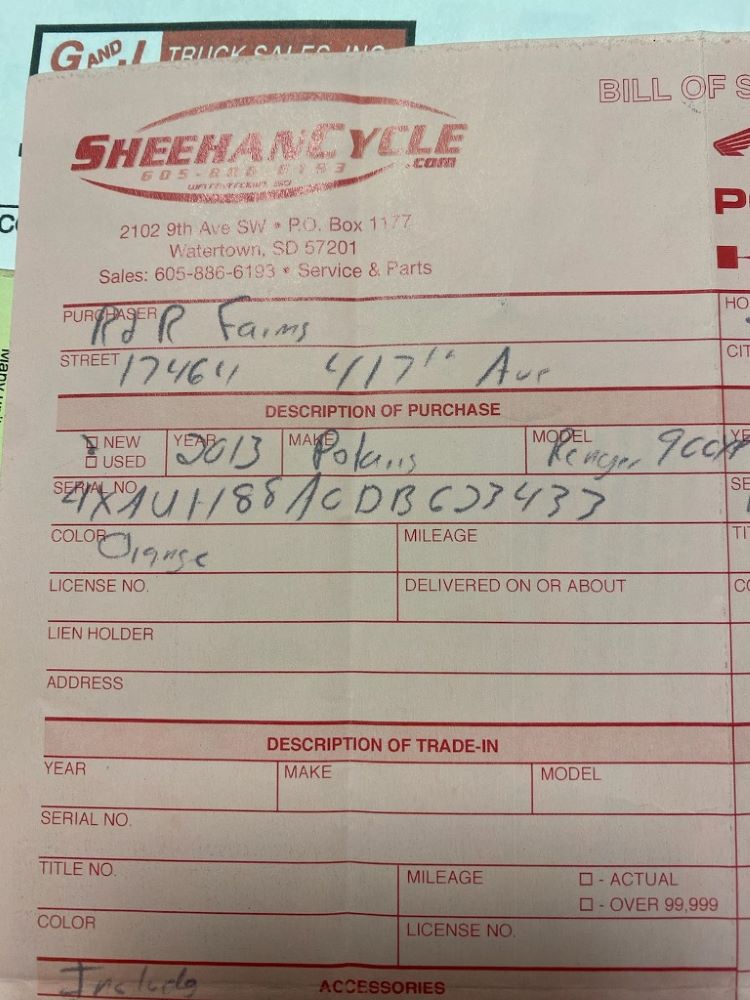 G AND J TRUCK SALES, INC.
BILL OF S
SHEEHANCYCLE
.com
2102 9th Ave SW • P.O. Box 1177
Watertown, SD 57201
Sales: 605-886-6193 • Service & Parts
PURCHASER R J R Farms
HO
STREET 17464 417th Ave
CIT
DESCRIPTION OF PURCHASE
☐ NEW
☐ USED
YEAR 2013
MAKE Polaris
MODEL Ranger 900XP
YE
SERIAL NO.
SE
COLOR Orange
MILEAGE
TI
LICENSE NO.
DELIVERED ON OR ABOUT
CO
LIEN HOLDER
ADDRESS
DESCRIPTION OF TRADE-IN
YEAR
MAKE
MODEL
SERIAL NO.
TITLE NO.
MILEAGE
☐ - ACTUAL
☐ - OVER 99,999
COLOR
LICENSE NO.
ACCESSORIES